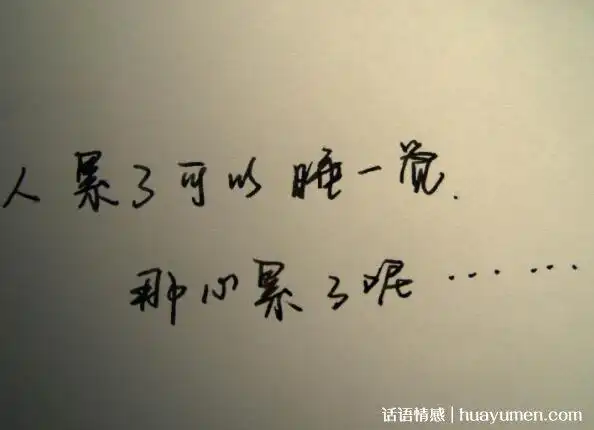 人累了可以睡一觉.
那心累了呢……
话语情感 | huayumen.com